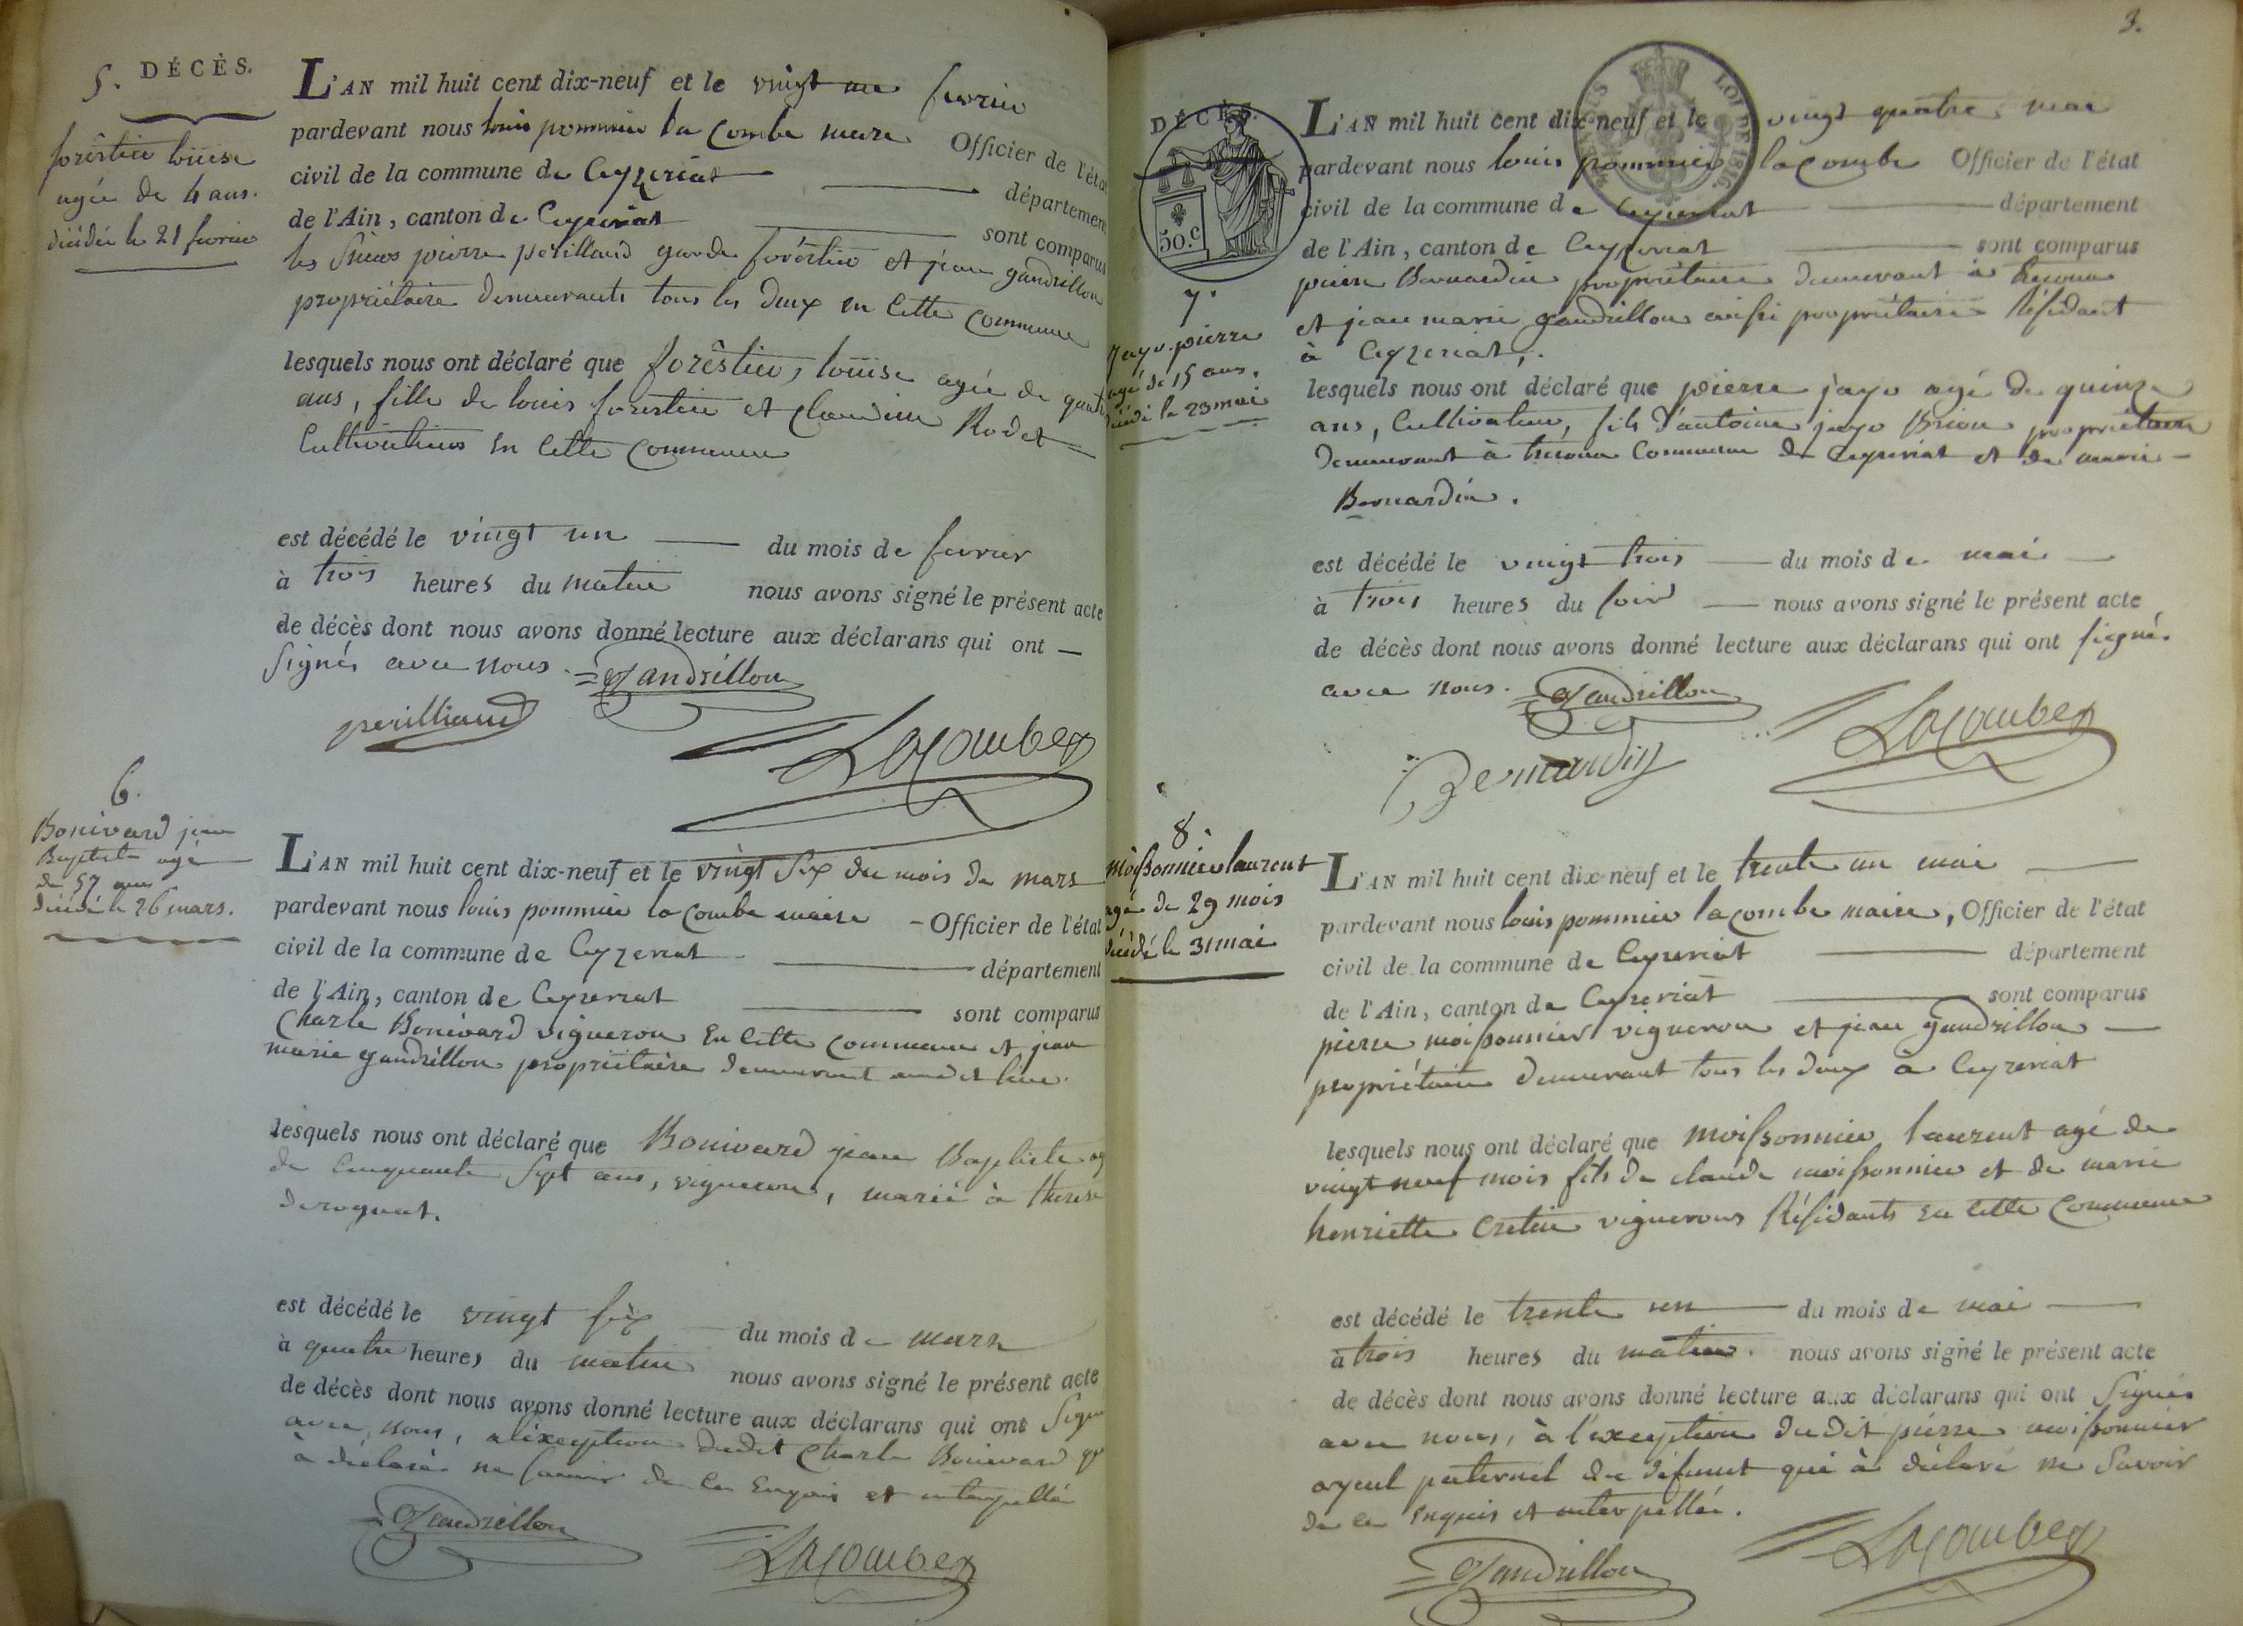 5. DÉCÈS.
forêstier louise
agée de 4 ans.
décédée le 21 fevrier
L'AN mil huit cent dix-neuf et le vingt un fevrier
pardevant nous louis pommier la combe maire Officier de l'état
civil de la commune de Ceyzeriat département
de l'Ain, canton de Ceyzeriat sont comparus
les Sieurs pierre perilliaud garde foréstier et jean gandrillon
propriétaire demeurants tous les deux en cette commune
lesquels nous ont déclaré que forêstier, louise agée de quatre
ans, fille de louis forestier et claudine Rodet
Cultivateurs en cette commune
est décédé le vingt un du mois de fevrier
à trois heures du matin nous avons signé le présent acte
de décès dont nous avons donné lecture aux déclarans qui ont
Signés avec nous. Gandrillon
perilliaud
Lacombe
6.
Bonivard jean
Baptiste agé
de 57 ans
décédé le 26 mars.
L'AN mil huit cent dix-neuf et le vingt Six du mois de mars
pardevant nous louis pommier la combe maire Officier de l'état
civil de la commune de Ceyzeriat département
de l'Ain, canton de Ceyzeriat sont comparus
Charle Bonivard vigneron en cette commune et jean
marie gandrillon propriétaire demeurant audit lieu.
lesquels nous ont déclaré que Bonivard jean Baptiste agé
de Cinquante Sept ans, vigneron, marié à therese
est décédé le vingt six du mois de mars
à quatre heures du matin nous avons signé le présent acte
de décès dont nous avons donné lecture aux déclarans qui ont Signé
avec nous, à l'exception dudit Charle Bonivard qui
à déclaré ne Savoir de ce Enquis et interpellé
Gandrillon
Lacombe
3.
LOI DE 1816.
DÉCÈS.
50.c
7.
Jayo pierre
agé de 15 ans.
décédé le 23 mai
L'AN mil huit cent dix-neuf et le vingt quatre mai
pardevant nous louis pommier lacombe Officier de l'état
civil de la commune de Ceyzeriat département
de l'Ain, canton de Ceyzeriat sont comparus
pierre Bernardin propriétaire demeurant à
et jean marie gandrillon aussi propriétaire Résidant
à Ceyzeriat,
lesquels nous ont déclaré que pierre jayo agé de quinze
ans, Cultivateur, fils d'antoine jayo propriétaire
demeurant à Commune de Ceyzeriat et de marie
Bernardin.
est décédé le vingt trois du mois de mai
à trois heures du soir nous avons signé le présent acte
de décès dont nous avons donné lecture aux déclarans qui ont signé
avec nous. Gandrillon
Bernardin
Lacombe
8
moissonnier laurent
agé de 29 mois
décédé le 31 mai
L'AN mil huit cent dix-neuf et le trente un mai
pardevant nous louis pommier lacombe maire, Officier de l'état
civil de la commune de Ceyzeriat département
de l'Ain, canton de Ceyzeriat sont comparus
pierre moissonnier vigneron et jean gandrillon
propriétaire demeurant tous les deux à Ceyzeriat
lesquels nous ont déclaré que moissonnier laurent agé de
vingt neuf mois fils de claude moissonnier et de marie
henriette Cretin vignerons Résidants en cette Commune
est décédé le trente un du mois de mai
à trois heures du matin. nous avons signé le présent acte
de décès dont nous avons donné lecture aux déclarans qui ont Signés
avec nous, à l'exception dudit pierre moissonnier
ayeul paternel du défunt qui à déclaré ne Savoir
de ce enquis et interpellé.
Gandrillon
Lacombe